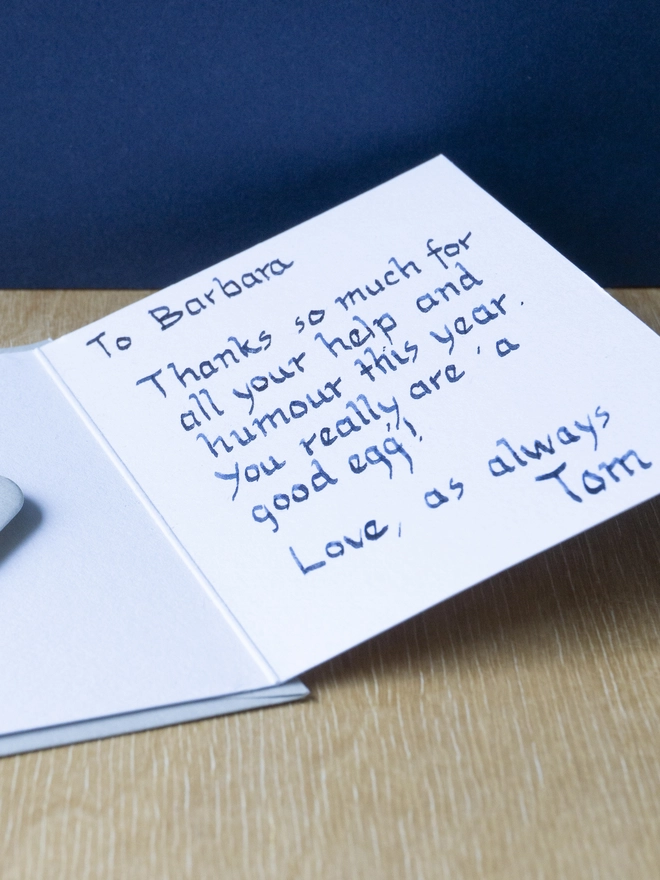 To Barbara
Thanks so much for
all your help and
humour this year.
You really are 'a
good egg'!
Love, as always
Tom